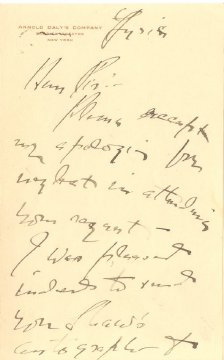 ARNOLD DALY'S COMPANY
NEW YORK
Dear Sir:-
Please accept
my apologies for
neglect in attending
your request -
I was pleased
indeed to send
you Shaw's
autograph &